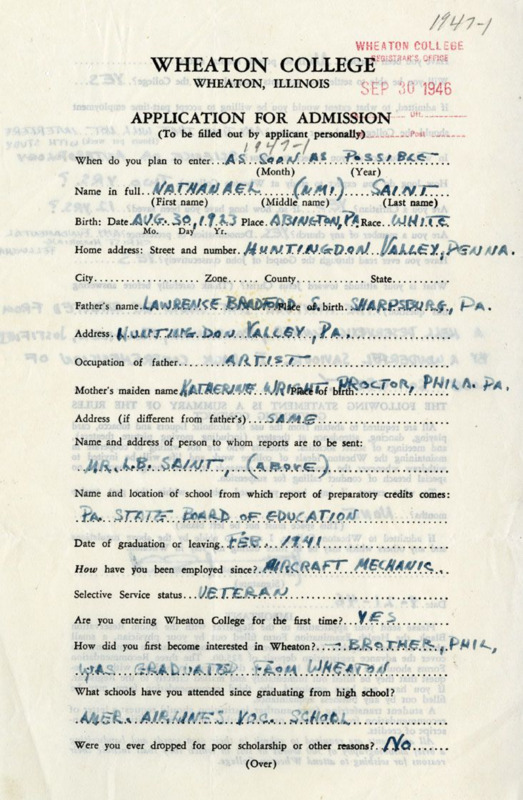 1947-1
WHEATON COLLEGE
REGISTRAR'S OFFICE
SEP 30 1946
WHEATON COLLEGE
WHEATON, ILLINOIS
APPLICATION FOR ADMISSION
(To be filled out by applicant personally)
1947-1
When do you plan to enter: AS SOON AS POSSIBLE
(Month) (Year)
Name in full NATHANAEL (NMI) SAINT
(First name) (Middle name) (Last name)
Birth: Date AUG. 30, 1923 Place ABINGTON, PA. Race WHITE
Mo. Day Yr.
Home address: Street and number. HUNTINGDON VALLEY, PENNA.
City Zone County State
Father's name LAWRENCE BRADFORD S. Place of birth SHARPSBURG, PA.
Address HUNTINGDON VALLEY, PA.
Occupation of father ARTIST
Mother's maiden name KATHERINE WRIGHT PROCTOR, Place of birth PHILA. PA.
Address (if different from father's) SAME
Name and address of person to whom reports are to be sent:
MR. L.B. SAINT, (ABOVE)
Name and location of school from which report of preparatory credits comes:
PA. STATE BOARD OF EDUCATION
Date of graduation or leaving FEB. 1941
How have you been employed since? AIRCRAFT MECHANIC
Selective Service status VETERAN
Are you entering Wheaton College for the first time? YES
How did you first become interested in Wheaton? BROTHER, PHIL,
WAS GRADUATED FROM WHEATON
What schools have you attended since graduating from high school?
AMER. AIRLINES VOC. SCHOOL
Were you ever dropped for poor scholarship or other reasons? NO
(Over)